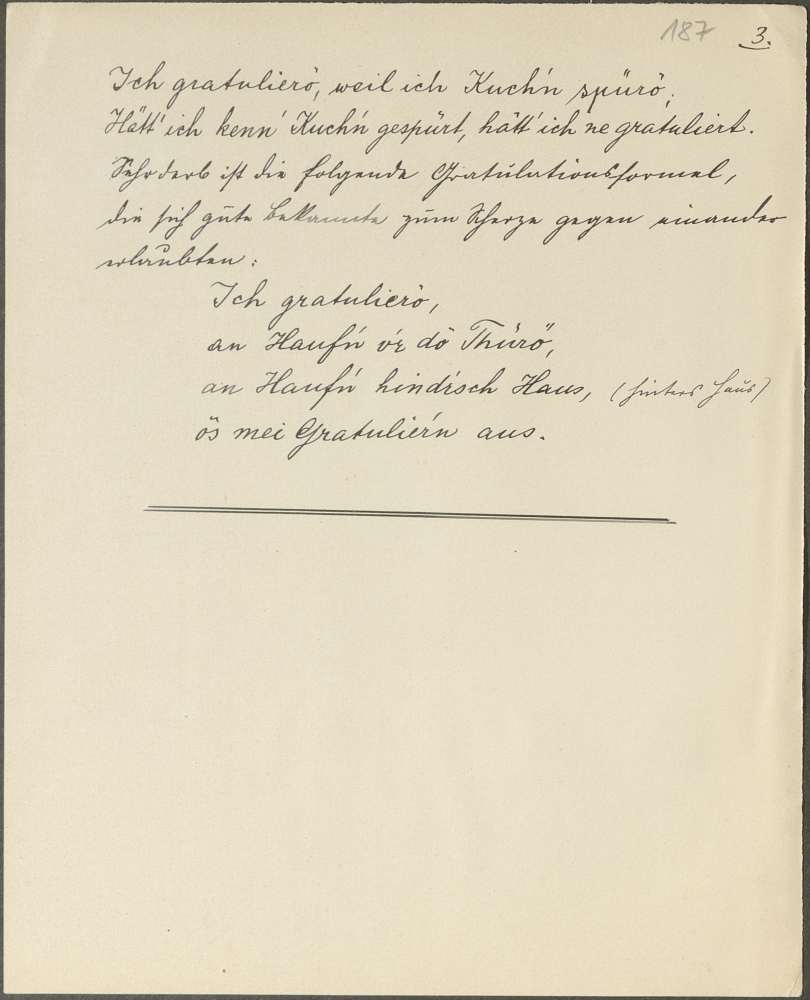 187 3.
Ich gratulierö, weil ich Kuch'n spürö;
Hätt' ich kenn' Kuch'n gespürt, hätt' ich ne gratuliert.
Sehr derb ist die folgende Gratulationsformel,
die sich gute Bekannte zum Scherze gegen einander
erlaubten:
Ich gratulierö,
an Hauf'n v'r dö Thürö,
an Hauf'n hind'rsch Haus, (hinters Haus)
ös mei Gratulier'n aus.